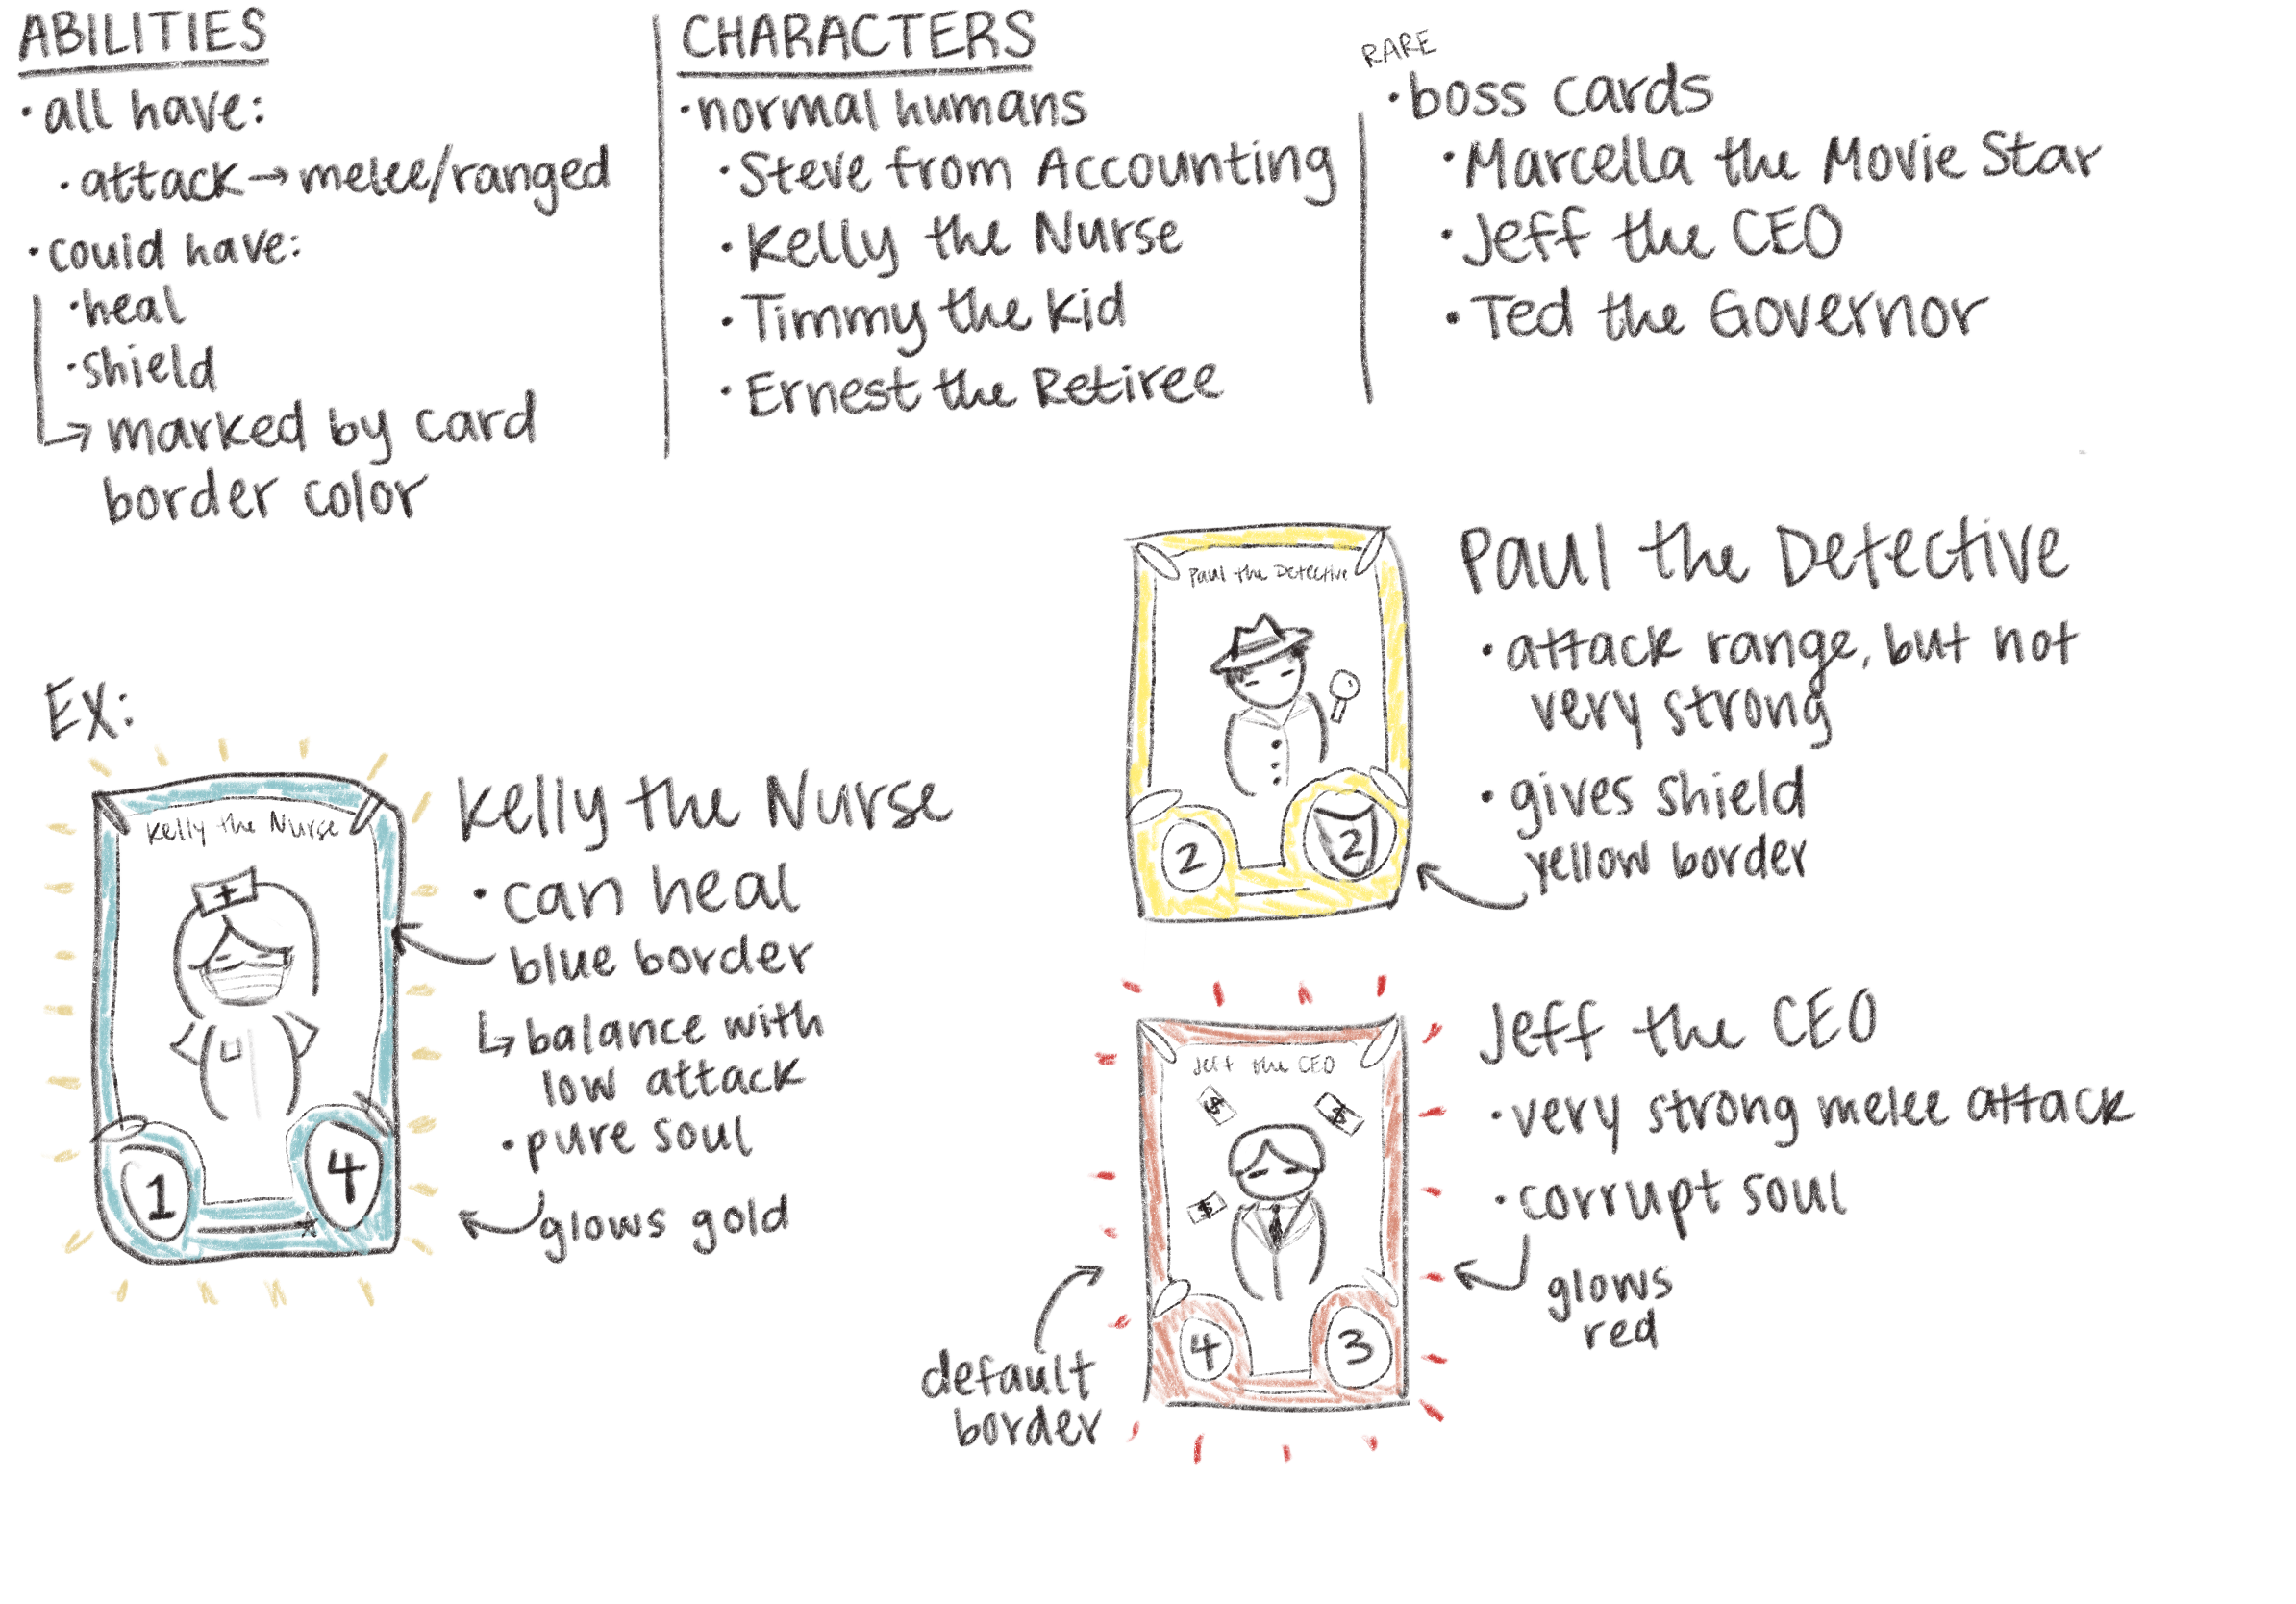 ABILITIES
• all have:
• attack → melee/ranged
• could have:
• heal
• shield
↳ marked by card
border color
CHARACTERS
• normal humans
• Steve from Accounting
• Kelly the Nurse
• Timmy the Kid
• Ernest the Retiree
RARE
• boss cards
• Marcella the Movie Star
• Jeff the CEO
• Ted the Governor
EX:
Kelly the Nurse
1
4
Kelly the Nurse
• can heal
blue border
↳ balance with
low attack
• pure soul
glows gold
Paul the Detective
2
2
Paul the Detective
• attack range, but not
very strong
• gives shield
yellow border
Jeff the CEO
$
$
$
4
3
default
border
Jeff the CEO
• very strong melee attack
• corrupt soul
glows
red